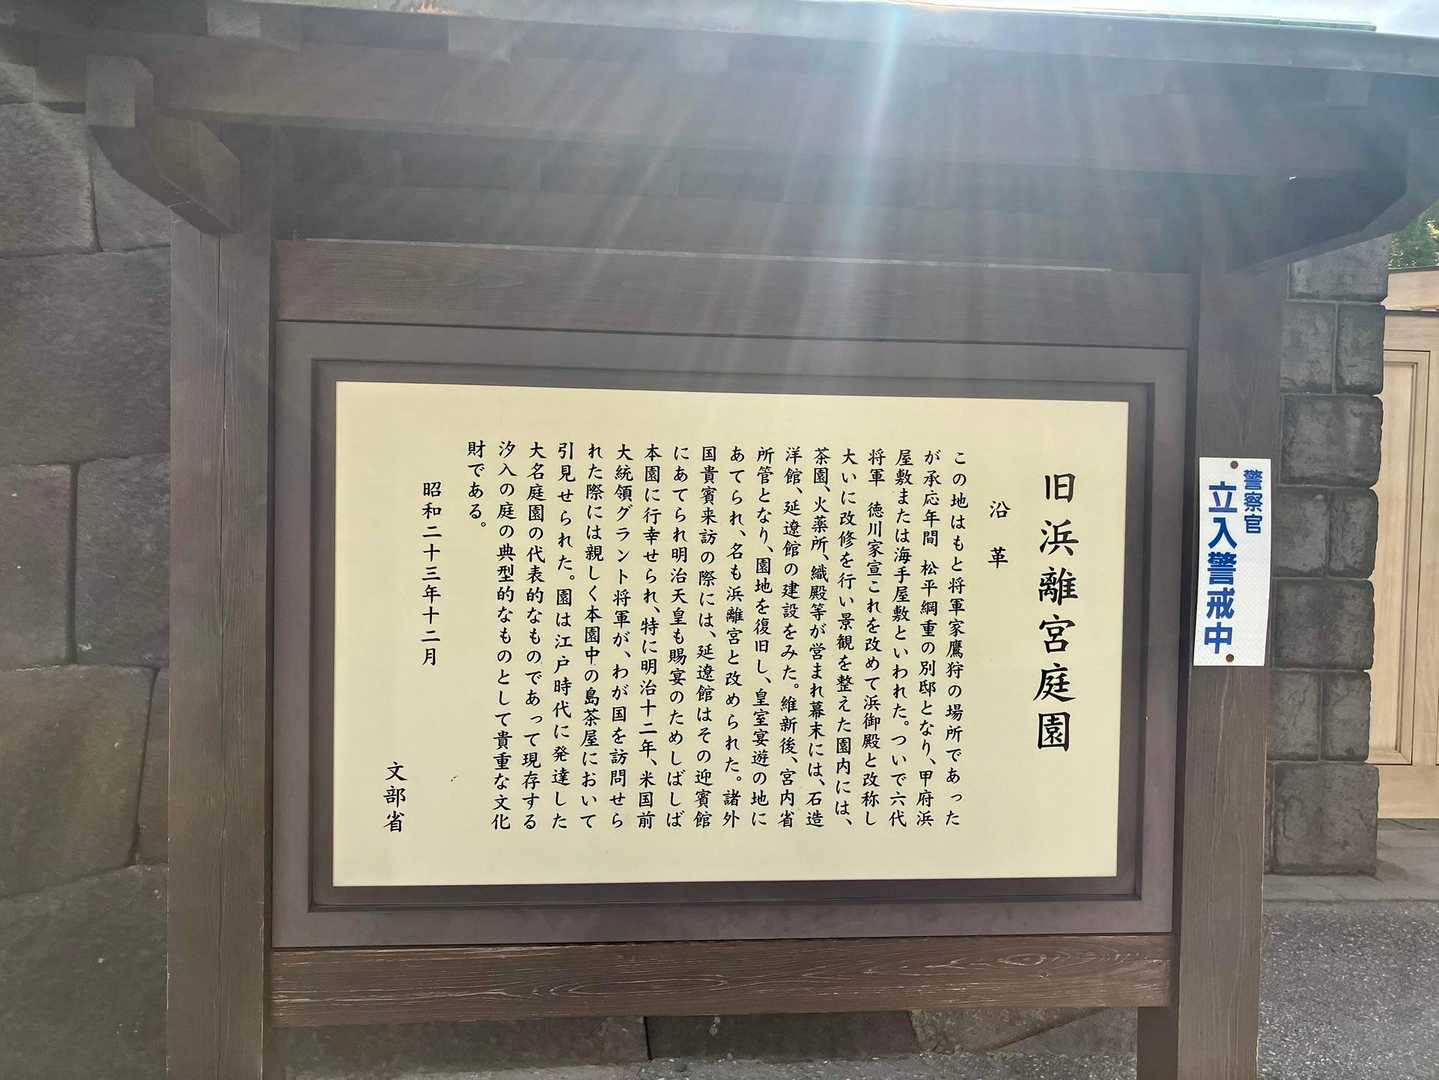 旧浜離宮庭園
沿革
この地はもと将軍家鷹狩の場所であった
が承応年間 松平綱重の別邸となり、甲府浜
屋敷または海手屋敷といわれた。ついで六代
将軍 徳川家宣これを改めて浜御殿と改称し
大いに改修を行い景観を整えた園内には、
茶園、火薬所、織殿等が営まれ幕末には、石造
洋館、延遼館の建設をみた。維新後、宮内省
所管となり、園地を復旧し、皇室宴遊の地に
あてられ、名も浜離宮と改められた。諸外
国貴賓来訪の際には、延遼館はその迎賓館
にあてられ明治天皇も賜宴のためしばしば
本園に行幸せられ、特に明治十二年、米国前
大統領グラント将軍が、わが国を訪問せら
れた際には親しく本園中の島茶屋において
引見せられた。園は江戸時代に発達した
大名庭園の代表的なものであって現存する
汐入の庭の典型的なものとして貴重な文化
財である。
昭和二十三年十二月
文部省
警察官
立入警戒中